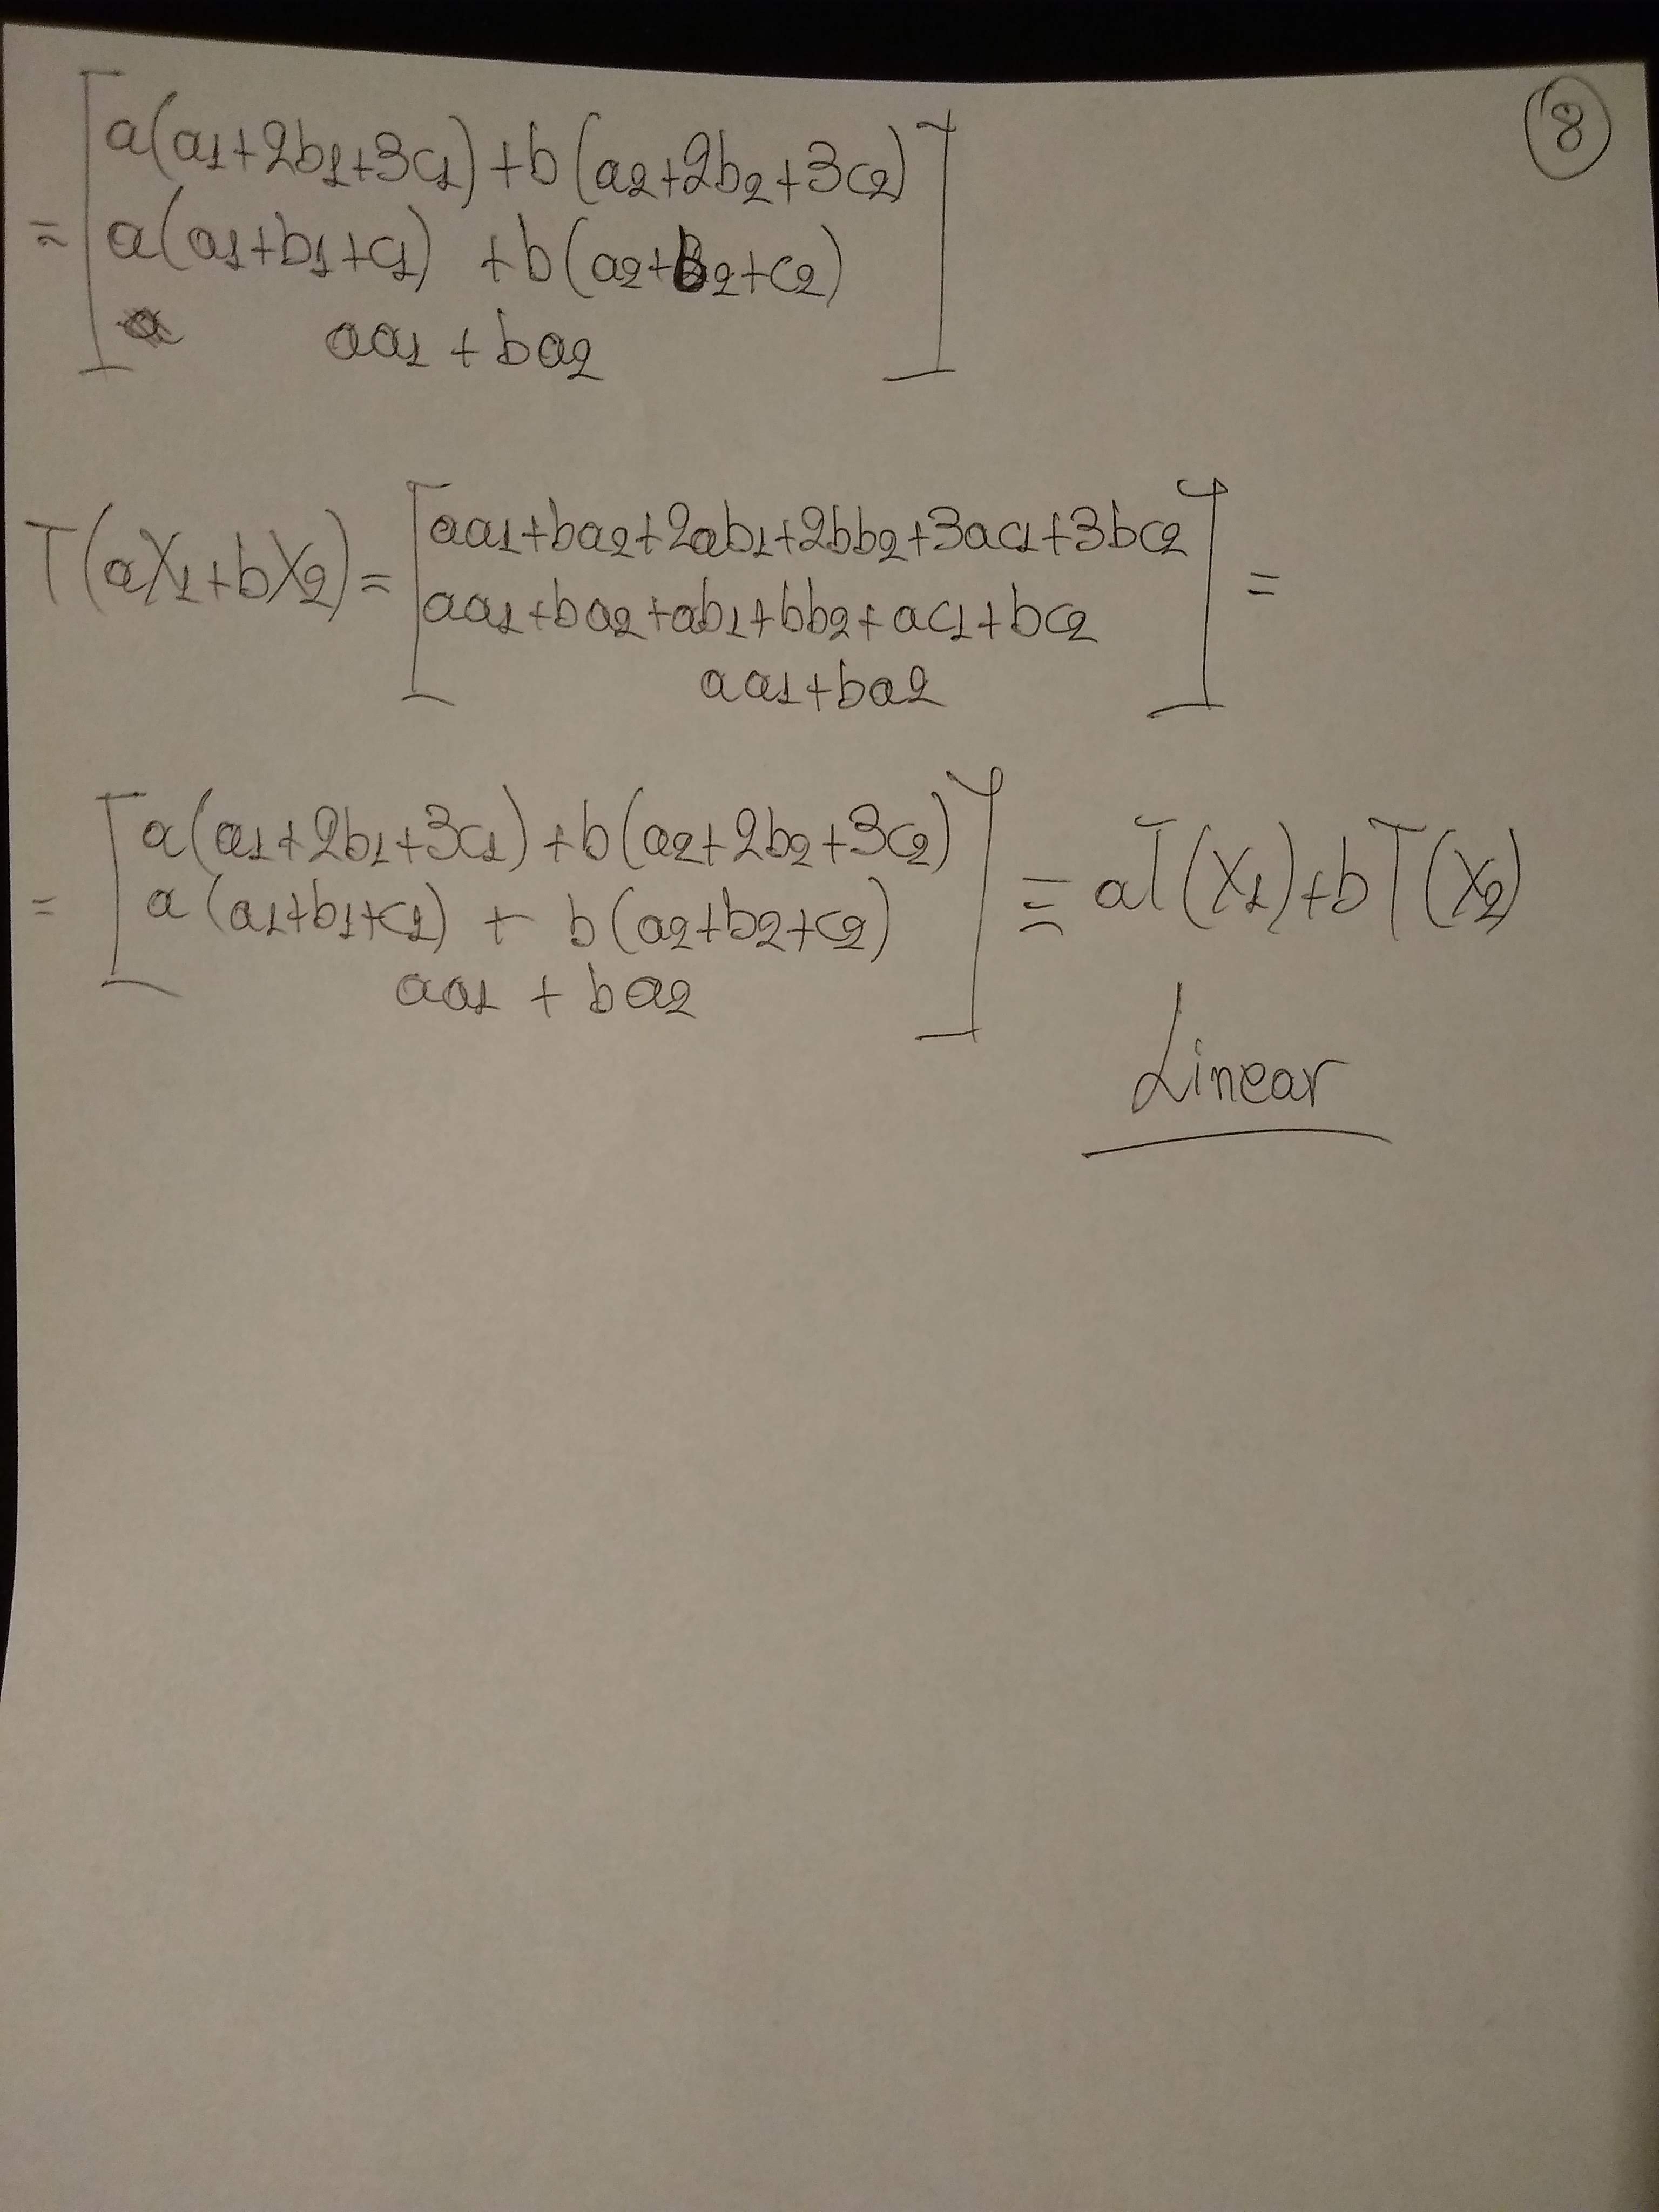 8
a(a1+2b1+3c1)+b(a2+2b2+3c2)
= a(a1+b1+c1) +b(a2+b2+c2)
aa1+ba2
aa1+ba2+2ab1+2bb2+3ac1+3bc2
T(aX1+bX2)= aa1+ba2+ab1+bb2+ac1+bc2 =
aa1+ba2
a(a1+2b1+3c1)+b(a2+2b2+3c2)
= a(a1+b1+c1) + b(a2+b2+c2) ≡ aT(X1)+bT(X2)
aa1 + ba2
Linear